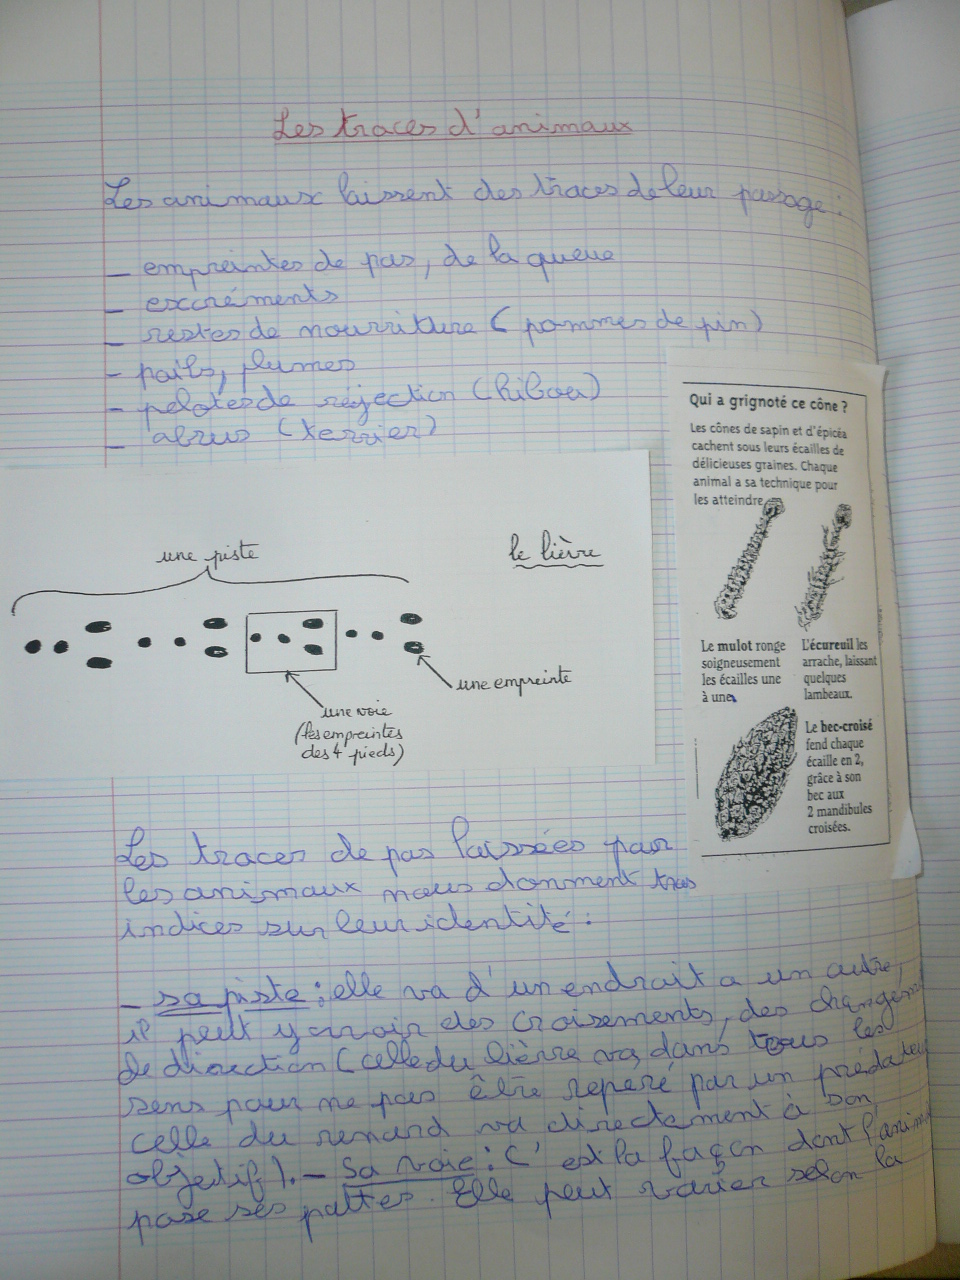 Les traces d'animaux
Les animaux laissent des traces de leur passage :
- empreintes de pas, de la queue
- excréments
- restes de nourriture (pommes de pin)
- poils, plumes
- pelotes de réjection (hibou)
- abrus (terrier)
une piste
le lièvre
une empreinte
une voie
(les empreintes
des 4 pieds)
Qui a grignoté ce cône ?
Les cônes de sapin et d'épicéa
cachent sous leurs écailles de
délicieuses graines. Chaque
animal a sa technique pour
les atteindre
Le mulot ronge
soigneusement
les écailles une
à une.
L'écureuil les
arrache, laissant
quelques
lambeaux.
Le bec-croisé
fend chaque
écaille en 2,
grâce à son
bec aux
2 mandibules
croisées.
Les traces de pas laissées par
les animaux nous donnent trois
indices sur leur identité :
- sa piste : elle va d'un endroit a un autre,
il peut y avoir des croisements, des changem
de direction (celle du lièvre va dans tous les
sens pour ne pas être reperé par un prédateu
celle du renard va directement à son
objectif). - Sa voie : C'est la façon dont l'anim
pose ses pattes. Elle peut varier selon la